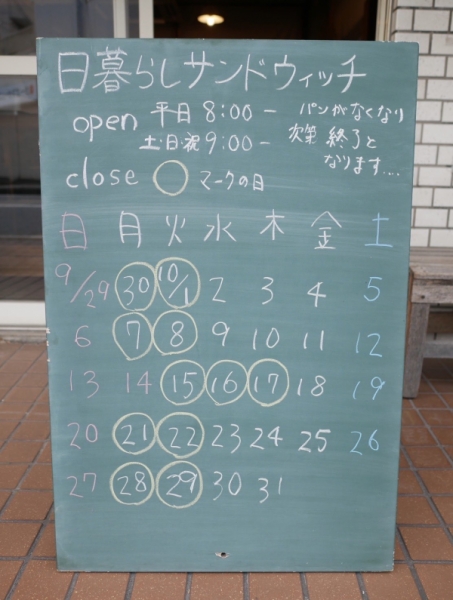 日暮らしサンドウィッチ
open 平日 8:00- パンがなくなり
土・日・祝 9:00- 次第 終了と
なります...
close ○ マークの日
日 月 火 水 木 金 土
9/29 30 10/1 2 3 4 5
6 7 8 9 10 11 12
13 14 15 16 17 18 19
20 21 22 23 24 25 26
27 28 29 30 31